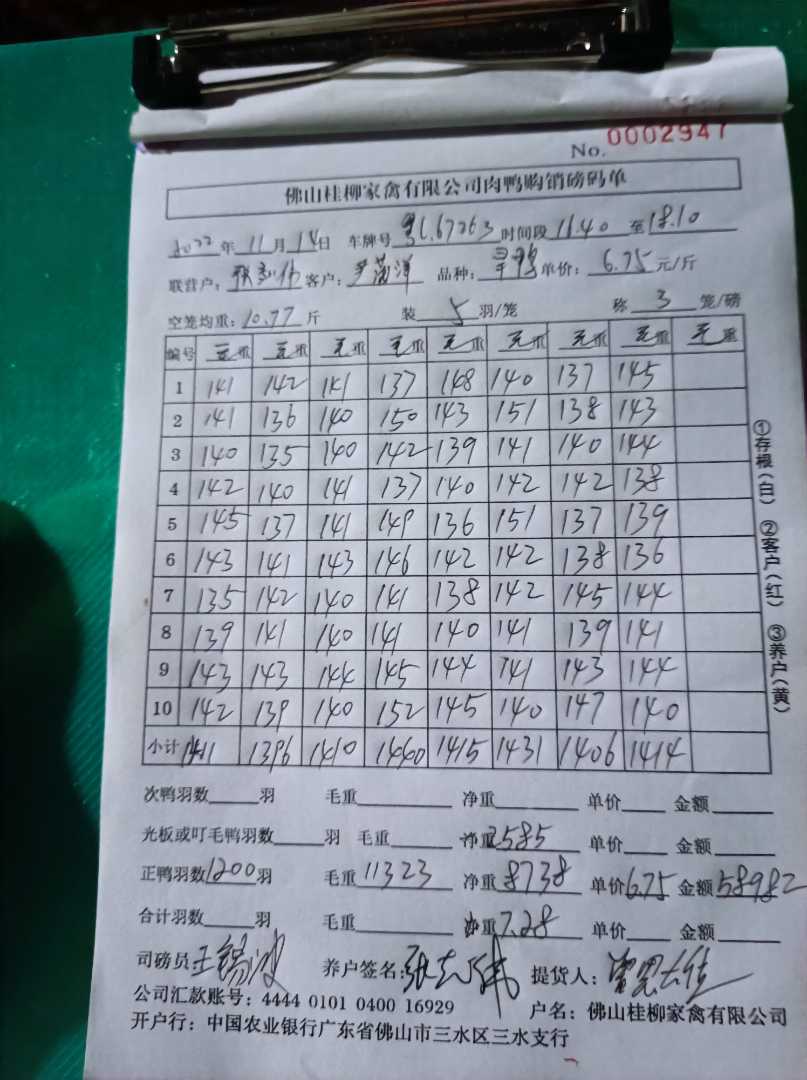 No. 0002947
佛山桂柳家禽有限公司肉鸭购销磅码单
2022年11月14日 车牌号 67263 时间段 16.40 至 18.10
联营户: 客户: 品种: 单价: 6.75 元/斤
空笼均重: 10.77 斤 装 5 羽/笼 称 3 笼/磅
编号 毛重 毛重 毛重 毛重 毛重 毛重 毛重 毛重 毛重
1 141 142 141 137 148 140 137 145
2 141 136 140 150 143 151 138 143
3 140 135 140 142 139 141 140 144
4 142 140 141 137 140 142 142 138
5 145 137 141 149 136 151 137 139
6 143 141 143 146 142 142 138 136
7 135 142 140 141 138 142 145 144
8 139 141 140 141 140 141 139 141
9 143 143 144 145 144 141 143 144
10 142 139 140 152 145 140 147 140
小计 1411 1396 1410 1440 1415 1431 1406 1414
次鸭羽数 羽 毛重 净重 单价 金额
光板或叮毛鸭羽数 羽 毛重 净重 2585 单价 金额
正鸭羽数 1200 羽 毛重 11323 净重 8738 单价 6.75 金额 58982
合计羽数 羽 毛重 净重 7.28 单价 金额
司磅员 王锡波 养户签名: 张志伟 提货人:
公司汇款账号: 4444 0101 0400 16929 户名: 佛山桂柳家禽有限公司
开户行: 中国农业银行广东省佛山市三水区三水支行
①存根(白) ②客户(红) ③养户(黄)